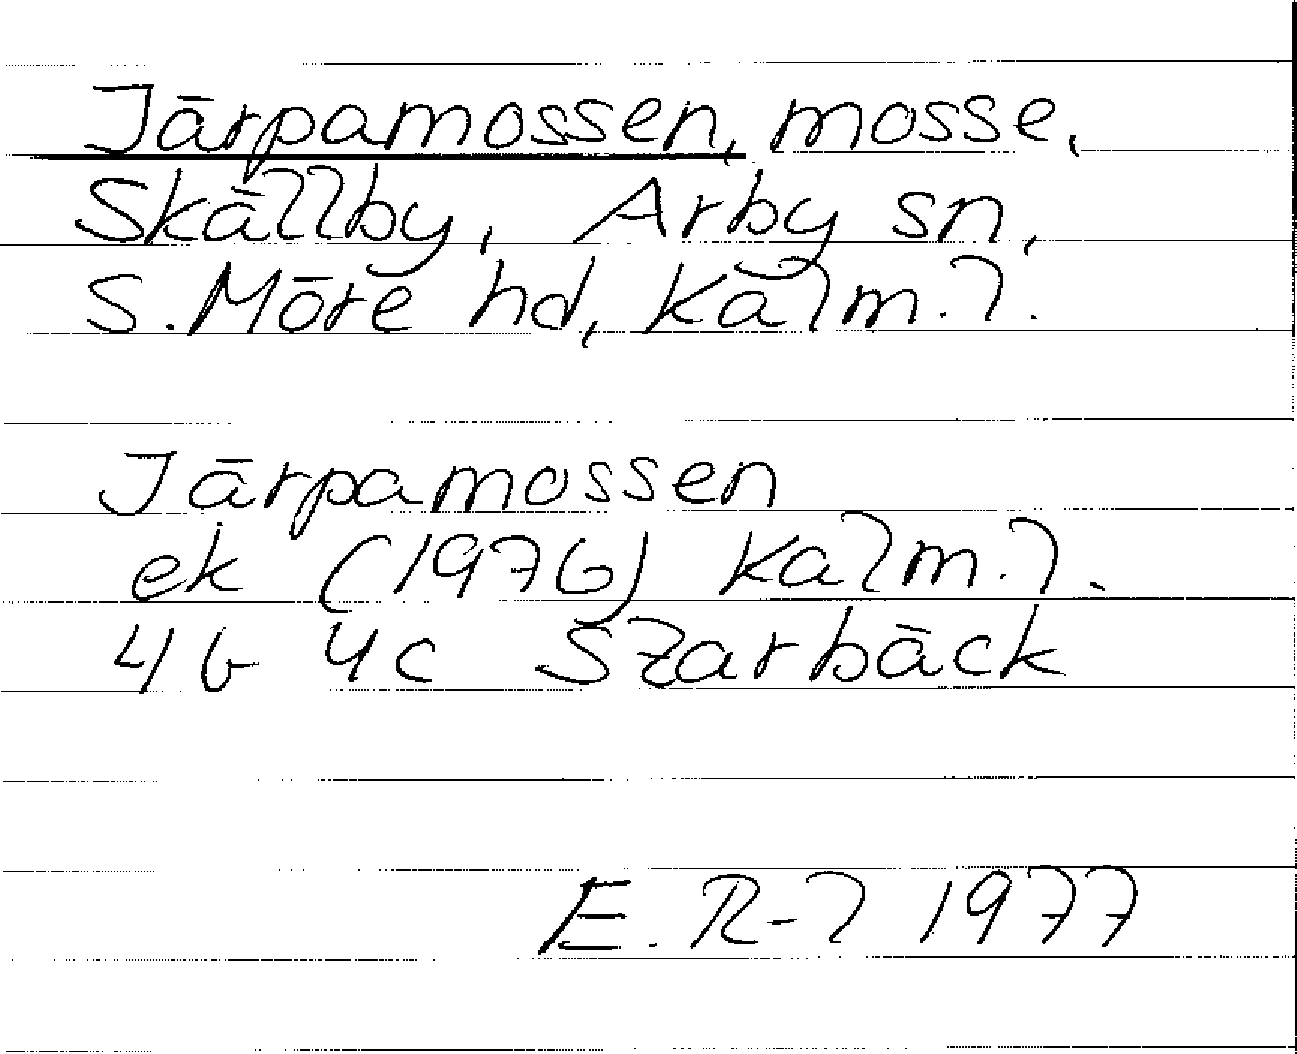 Järpamossen, mosse,
Skällby, Arby sn,
S. Möre hd, Kalm. l.
Järpamossen
ek (1976) Kalm. l.
4G 4c Szarbäck
E. R-l 1977